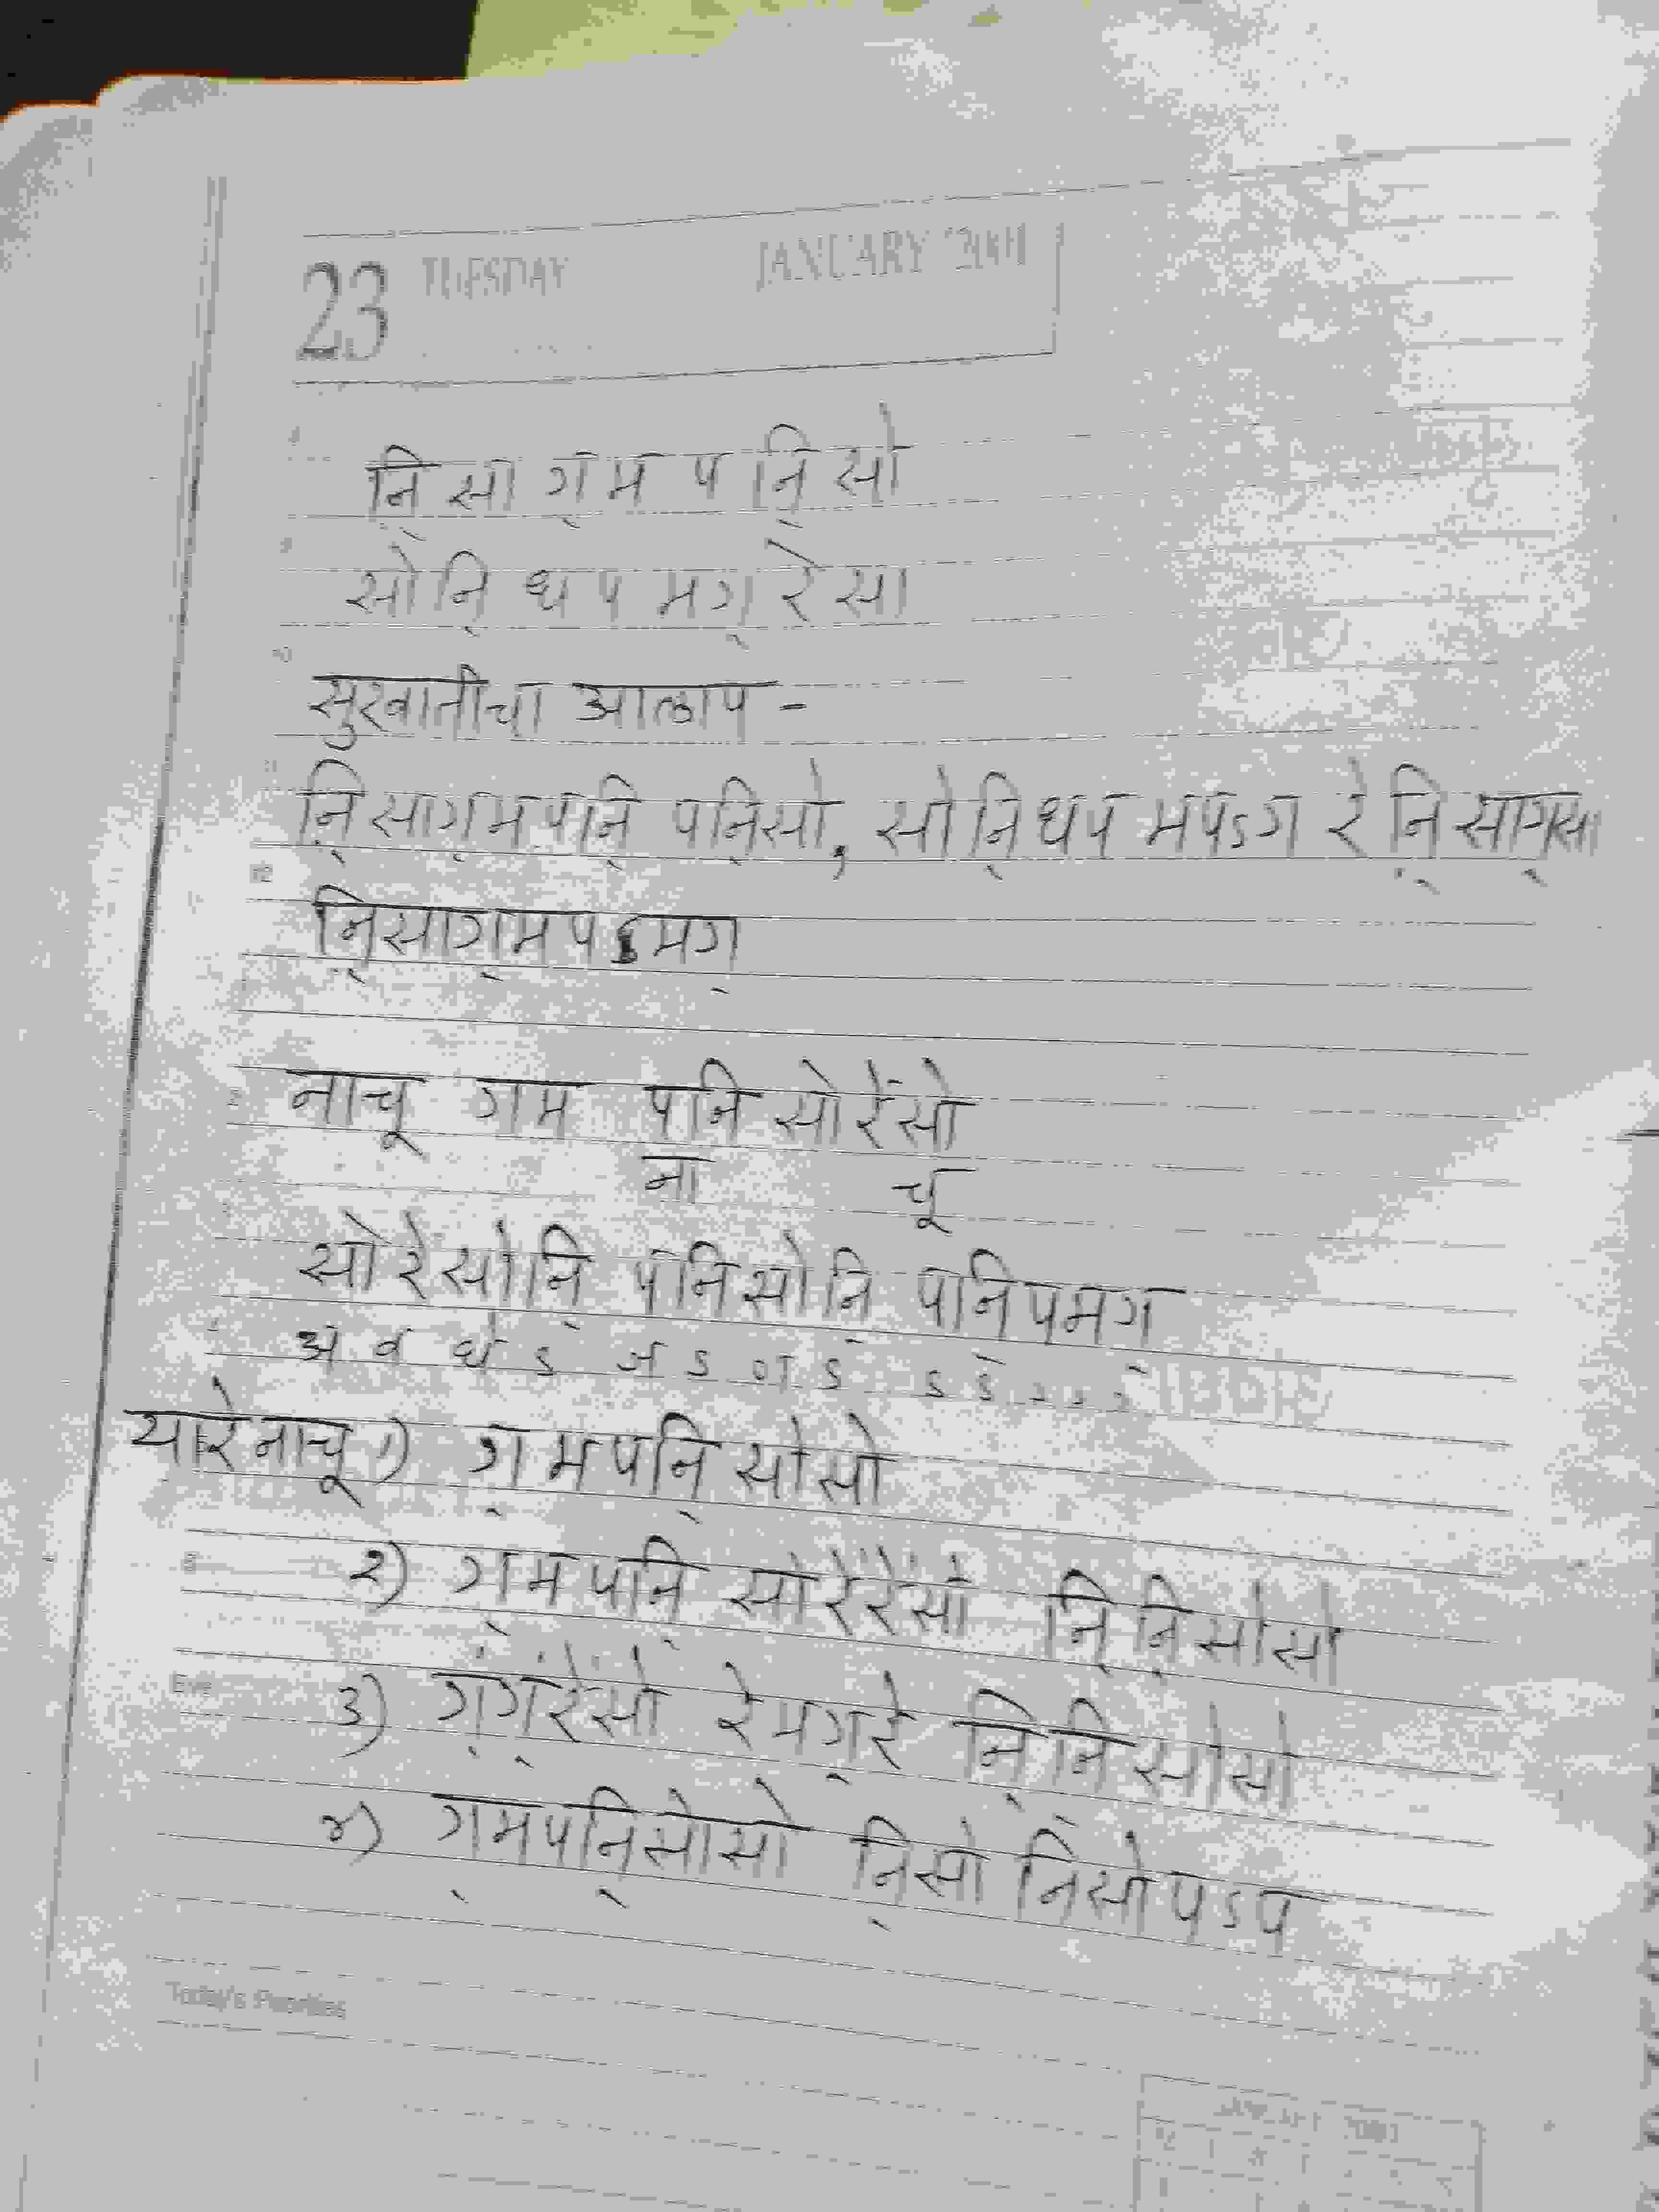 23 TUESDAY JANUARY 2001
नि़ सा ग॒ म प नि॒ सो
सो नि॒ ध प म ग॒ रे सा
सुरवातीचा आलाप -
नि॒साग॒मपनि॒ पनि॒सो, सो नि॒धप मपऽग रे नि़॒ साग॒सा
नि॒साग॒मपऽमग॒
नाचू गम पनि सोरेंसो
ना चू
सोरेसोनि॒ पनिसोनि॒ पनिपमग॒
अ व घे ऽ ज ऽ ण ऽ ऽ ऽ
यारे नाचू १) ग॒मपनि॒ सोसो
२) ग॒मपनि॒ सोरेंरेंसो नि॒नि॒सोसो
३) ग॒ंग॒ंरेंसो रेमग॒रे नि॒नि॒सोसो
४) ग॒मपनि॒सोसो नि॒सो निसोपऽप
Today's Priorities